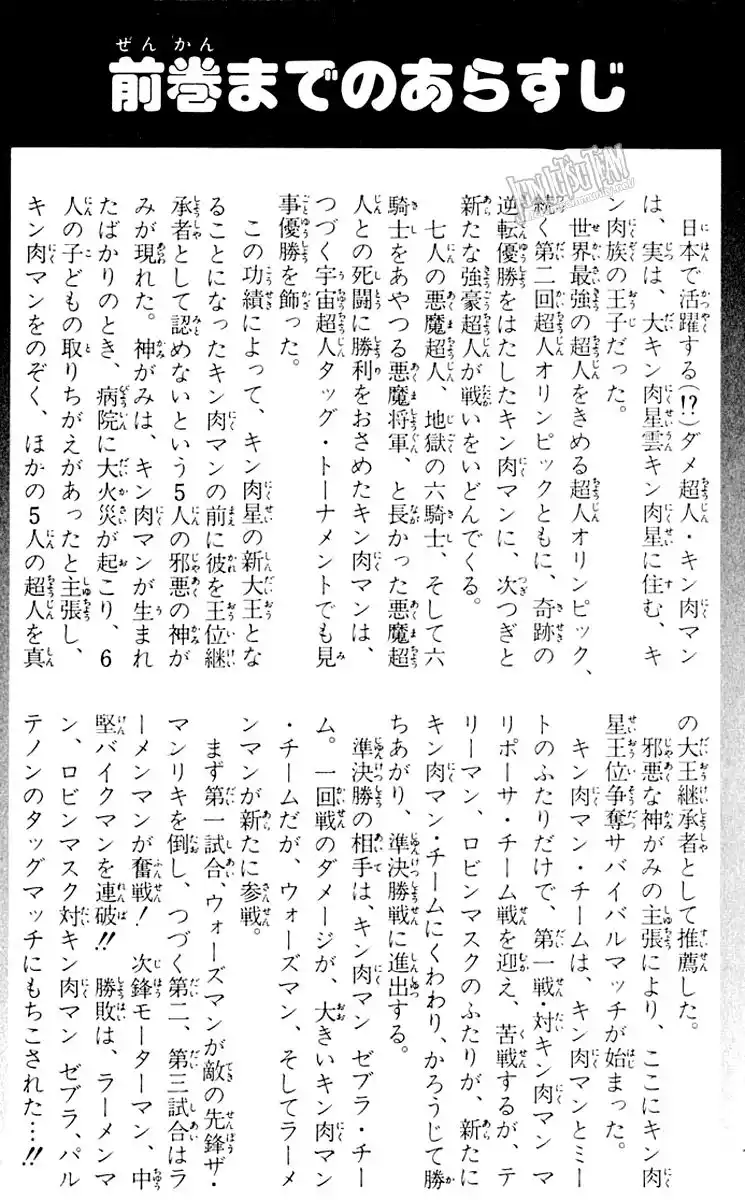 前巻までのあらすじ
日本で活躍する(!?)ダメ超人・キン肉マン
は、実は、大キン肉星雲キン肉星に住む、キ
ン肉族の王子だった。
世界最強の超人をきめる超人オリンピック、
続く第二回超人オリンピックともに、奇跡の
逆転優勝をはたしたキン肉マンに、次つぎと
新たな強豪超人が戦いをいどんでくる。
七人の悪魔超人、地獄の六騎士、そして六
騎士をあやつる悪魔将軍、と長かった悪魔超
人との死闘に勝利をおさめたキン肉マンは、
つづく宇宙超人タッグ・トーナメントでも見
事優勝を飾った。
この功績によって、キン肉星の新大王とな
ることになったキン肉マンの前に彼を王位継
承者として認めないという5人の邪悪の神が
みが現れた。神がみは、キン肉マンが生まれ
たばかりのとき、病院に大火災が起こり、6
人の子どもの取りちがえがあったと主張し、
キン肉マンをのぞく、ほかの5人の超人を真
の大王継承者として推薦した。
邪悪な神がみの主張により、ここにキン肉
星王位争奪サバイバルマッチが始まった。
キン肉マン・チームは、キン肉マンとミー
トのふたりだけで、第一戦・対キン肉マン マ
リポーサ・チーム戦を迎え、苦戦するが、テ
リーマン、ロビンマスクのふたりが、新たに
キン肉マン・チームにくわわり、かろうじて勝
ちあがり、準決勝戦に進出する。
準決勝の相手は、キン肉マン ゼブラ・チー
ム。一回戦のダメージが、大きいキン肉マン
・チームだが、ウォーズマン、そしてラーメ
ンマンが新たに参戦。
まず第一試合、ウォーズマンが敵の先鋒ザ・
マンリキを倒し、つづく第二、第三試合はラ
ーメンマンが奮戦! 次鋒モーターマン、中
堅バイクマンを連破!! 勝敗は、ラーメンマ
ン、ロビンマスク対キン肉マン ゼブラ、パル
テノンのタッグマッチにもちこされた…!!